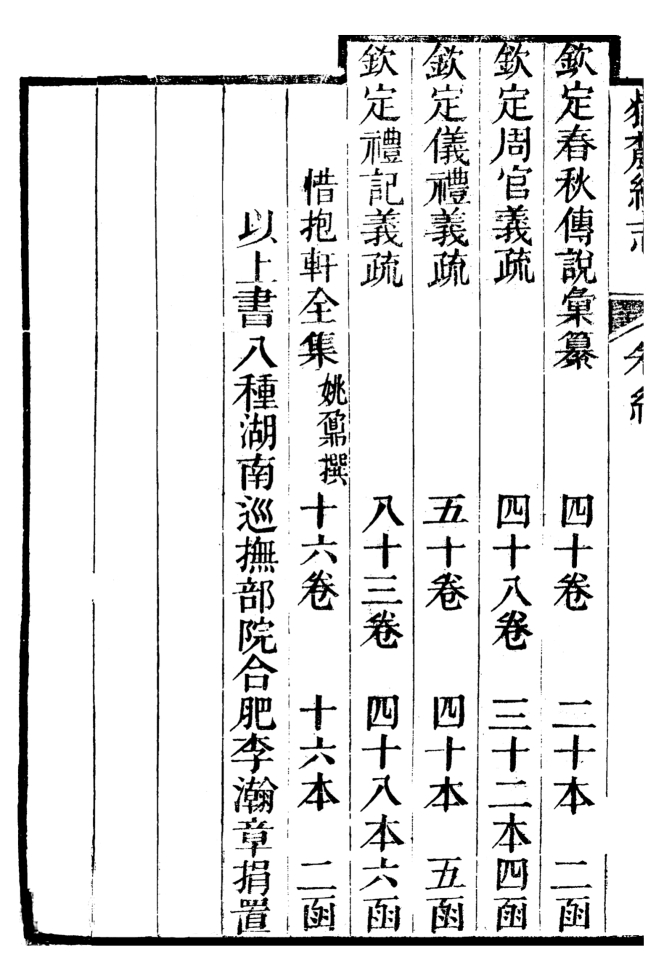 欽定春秋傳說彙纂 四十卷 二十本 二函
欽定周官義疏 四十八卷 三十二本 四函
欽定儀禮義疏 五十卷 四十本 五函
欽定禮記義疏 八十三卷 四十八本 六函
惜抱軒全集 姚鼐撰 十六卷 十六本 二函
以上書八種湖南巡撫部院合肥李瀚章捐置